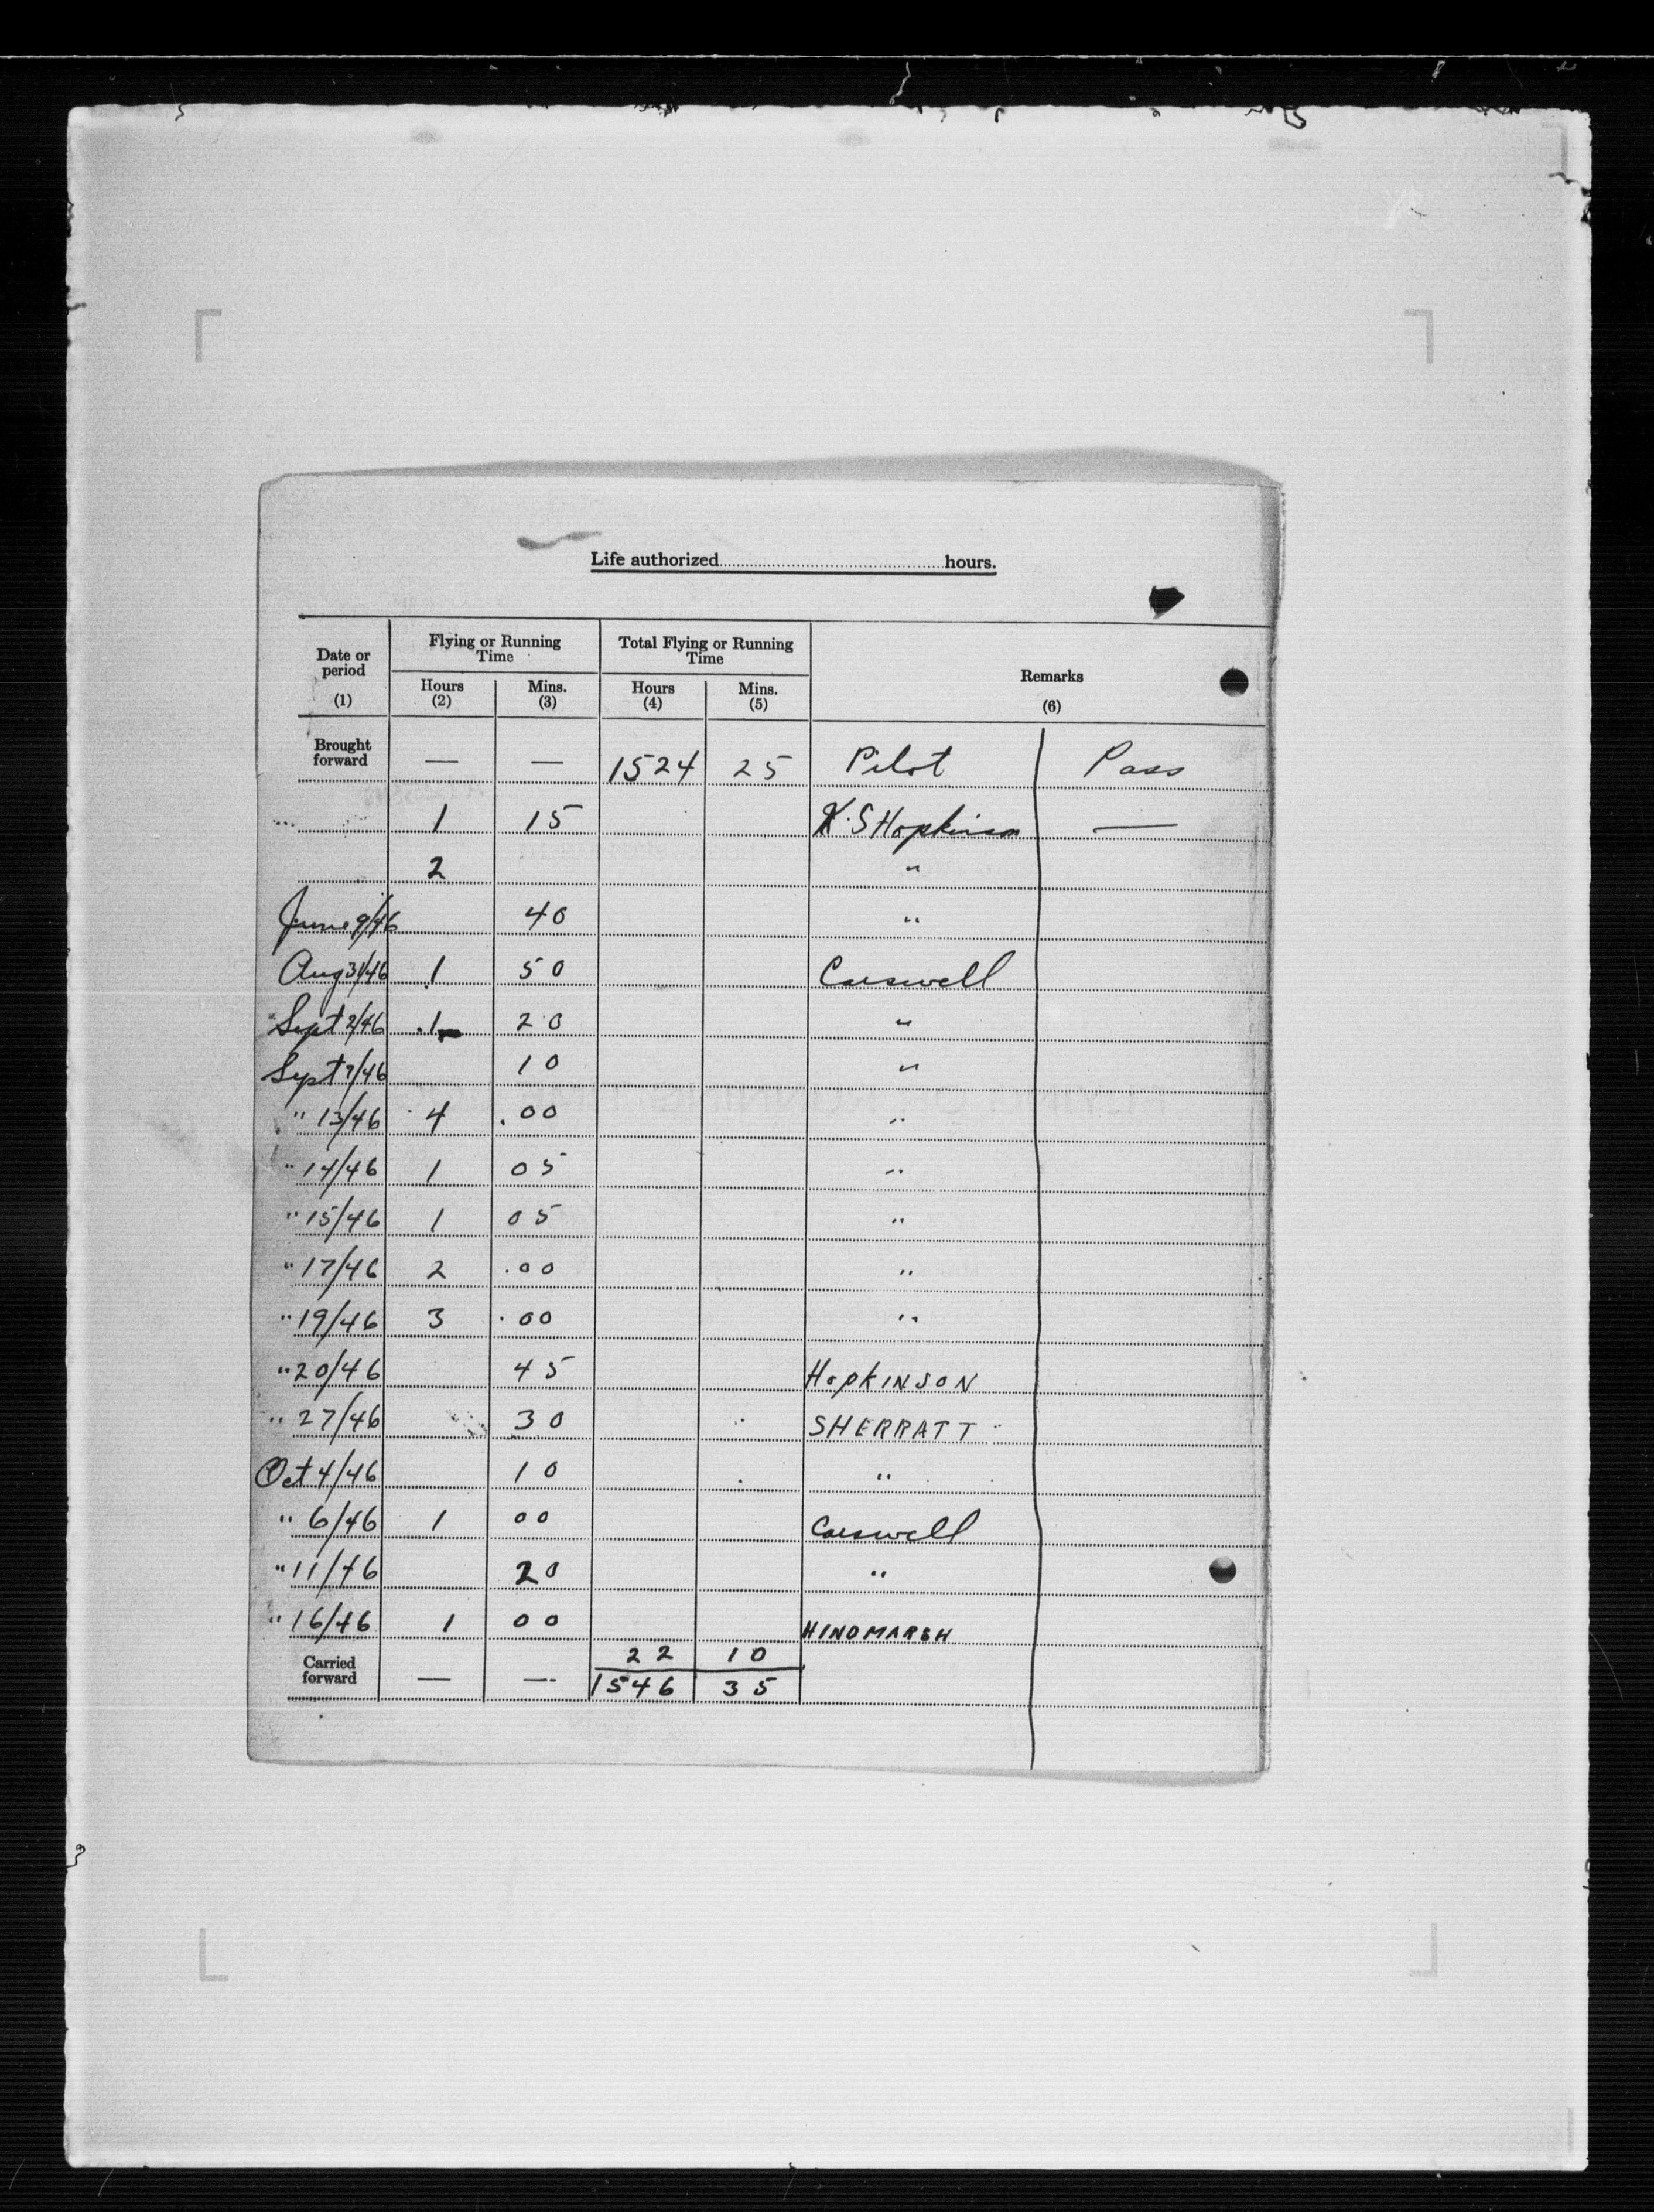 Life authorized.............hours.
Date or period (1) Flying or Running Time Total Flying or Running Time Remarks (6)
Hours (2) Mins. (3) Hours (4) Mins. (5)
Brought forward — — 1524 25 Pilot Pass
1 15 K.S Hopkinson —
2 "
June 9/46 40 "
Aug 31/46 1 50 Carswell
Sept 2/46 1 20 "
Sept 7/46 10 "
" 13/46 4 .00 "
" 14/46 1 05 "
" 15/46 1 05 "
" 17/46 2 .00 "
" 19/46 3 .00 "
" 20/46 45 HOPKINSON
" 27/46 30 SHERRATT
Oct 4/46 10 "
" 6/46 1 00 Carswell
" 11/46 20 "
" 16/46 1 00 HINDMARSH
22 10
Carried forward — — 1546 35